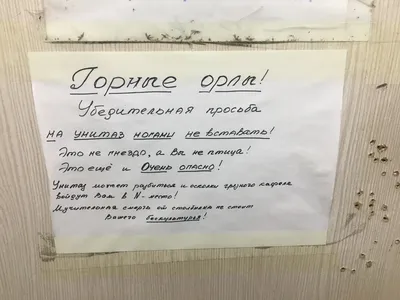 Горные орлы!
Убедительная просьба
на унитаз ногами не вставать!
Это не гнездо, а Вы не птица!
Это ещё и очень опасно!
Унитаз может разбиться и осколки грязного кафеля
войдут Вам в N-место!
Мучительная смерть от столбняка не стоит
Вашего бескультурья!